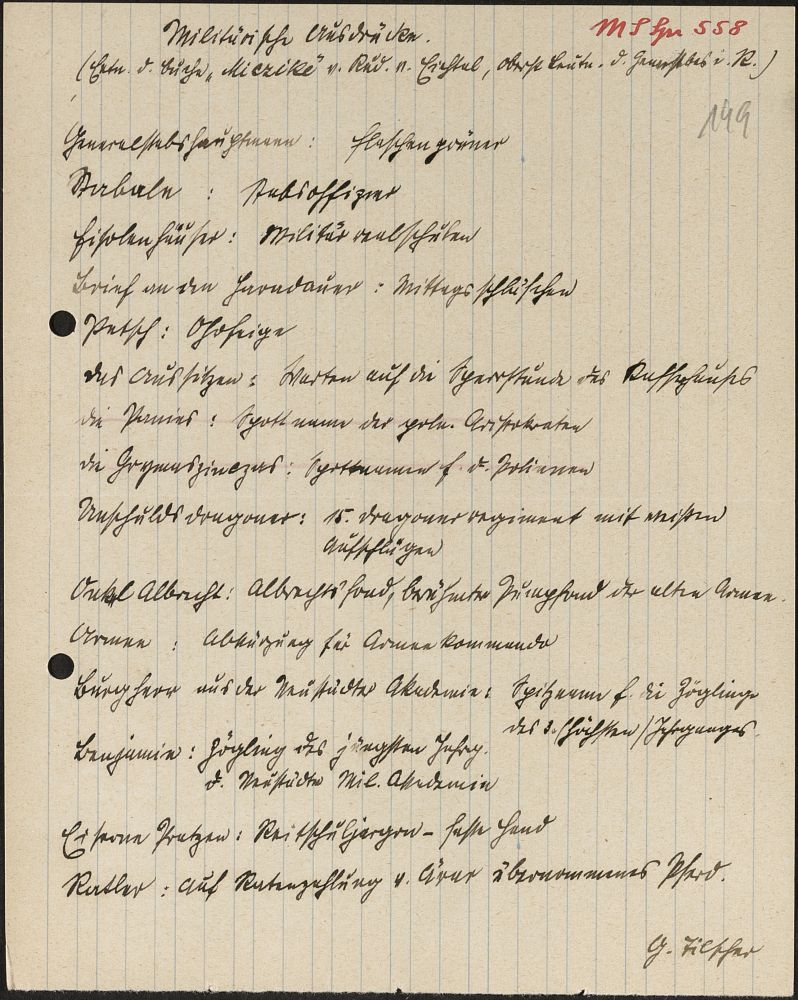 Militärische Ausdrücke.
MS Spr 558
(Entn. d. Buche „Miczike" v. Rud. v. Eichtal, Oberst Leutn. d. Generalstabes i. R.)
149
Generalstabshauptmann: Flaschengrüner
Stabale : Stabsoffizier
Fisolenhäuser: Militärrealschulen
Brief an den Haradauer : Mittagsschläfchen
Petsch: Ohrfeige
das Aussitzen: Warten auf die Sperrstunde des Kaffeehauses
die Panies: Spottname der poln. Aristokraten
die : Spottnamen f. d. Polinnen
Unschuldsdragoner: 15. Dragonerregiment mit weißen
Aufschlägen
Onkel Albrecht: Albrechtsfond, berühmter Pumpfond der alten Armee.
Armee : Abkürzung für Armeekommando
Burgherr aus der Neustädter Akademie: Spitzname f. die Zöglinge
des 3. (höchsten) Jahrganges.
Benjamin: Zögling des jüngsten Jahrg.
d. Neustädter Mil. Akademie
Eiserne Pratzen: Reitschuljargon - feste Hand
Ratler : auf Ratenzahlung v. Ärar übernommenes Pferd.
G. Tilscher